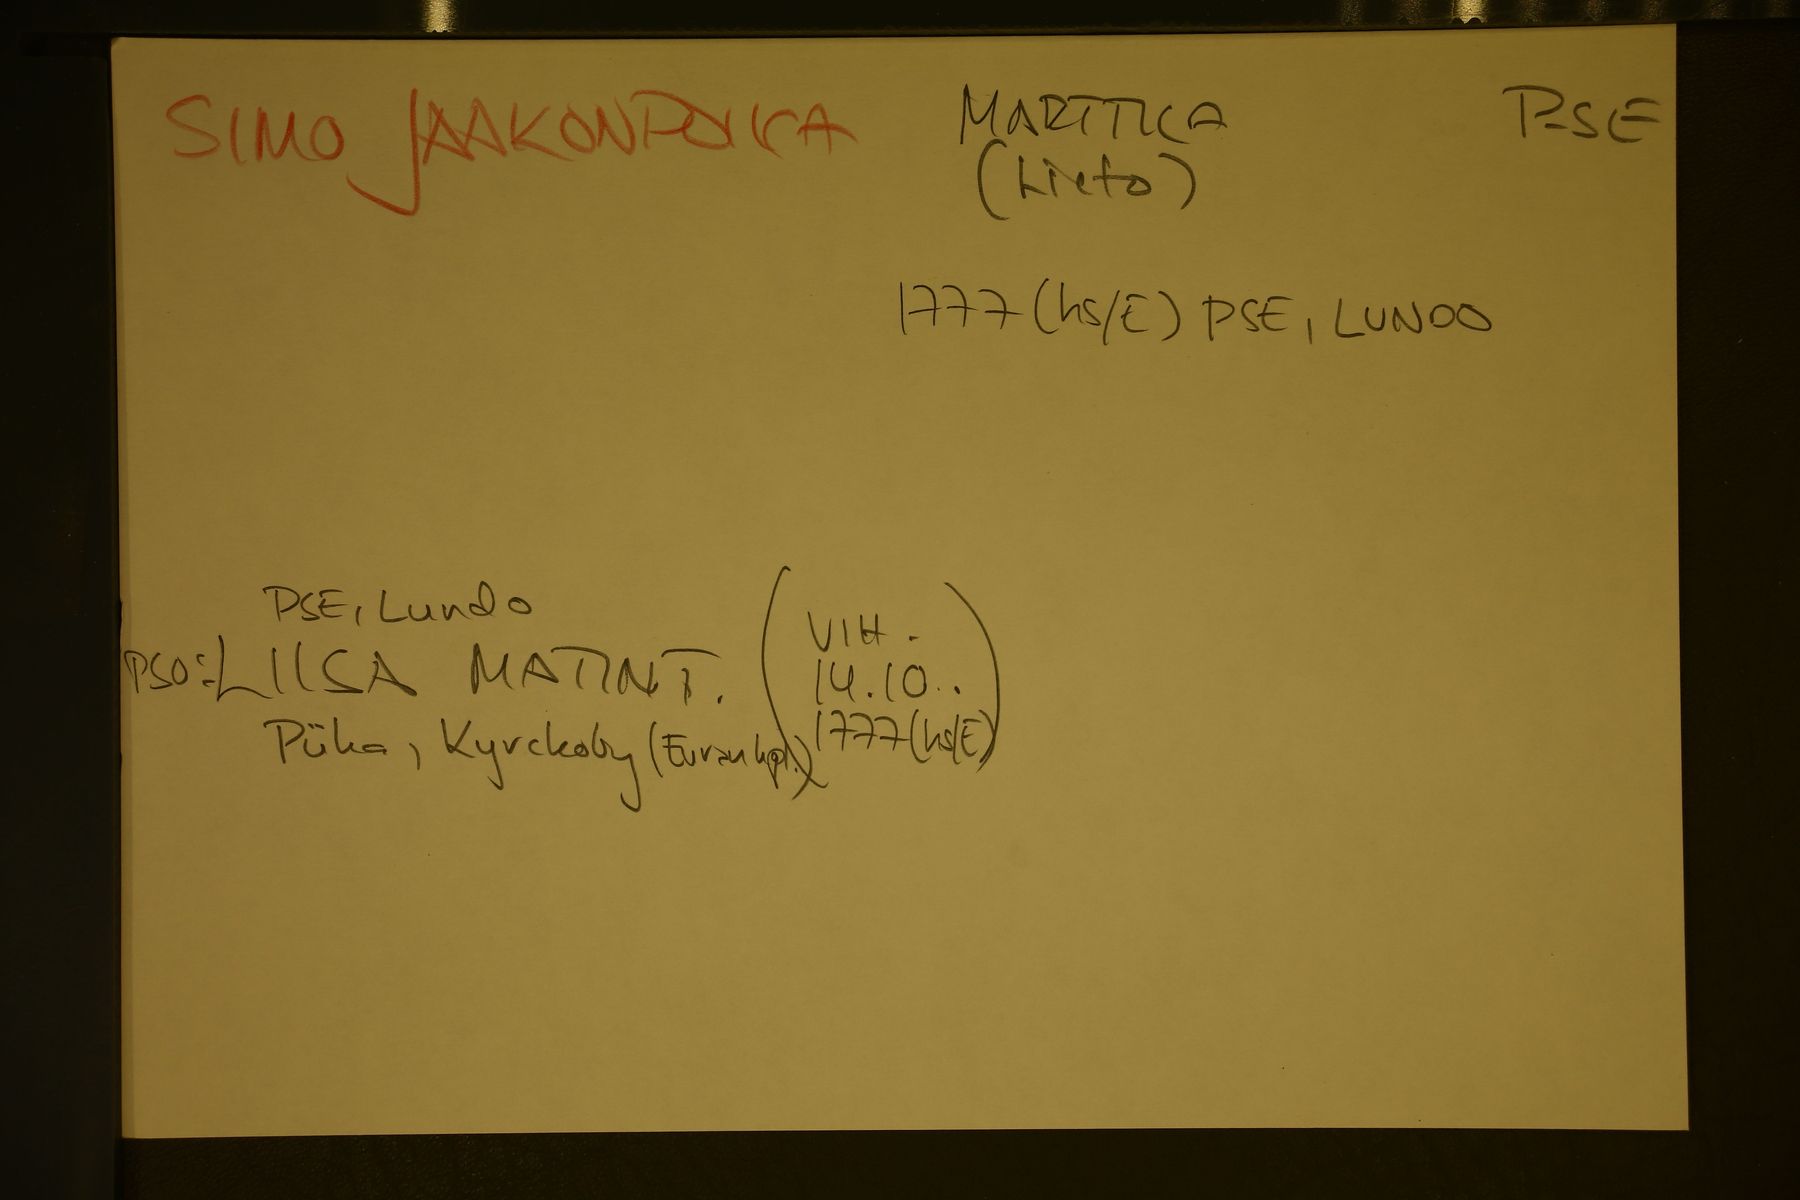 SIMO JAAKONPOIKA MARTTILA PSE
(Lieto)
1777 (hs/E) PSE, LUNDO
PSE, Lundo
PSO: LIISA MATINT.
Piika, Kyrckoby (Euran kpl.)
(VIH.
14.10..
1777 (hs/E))